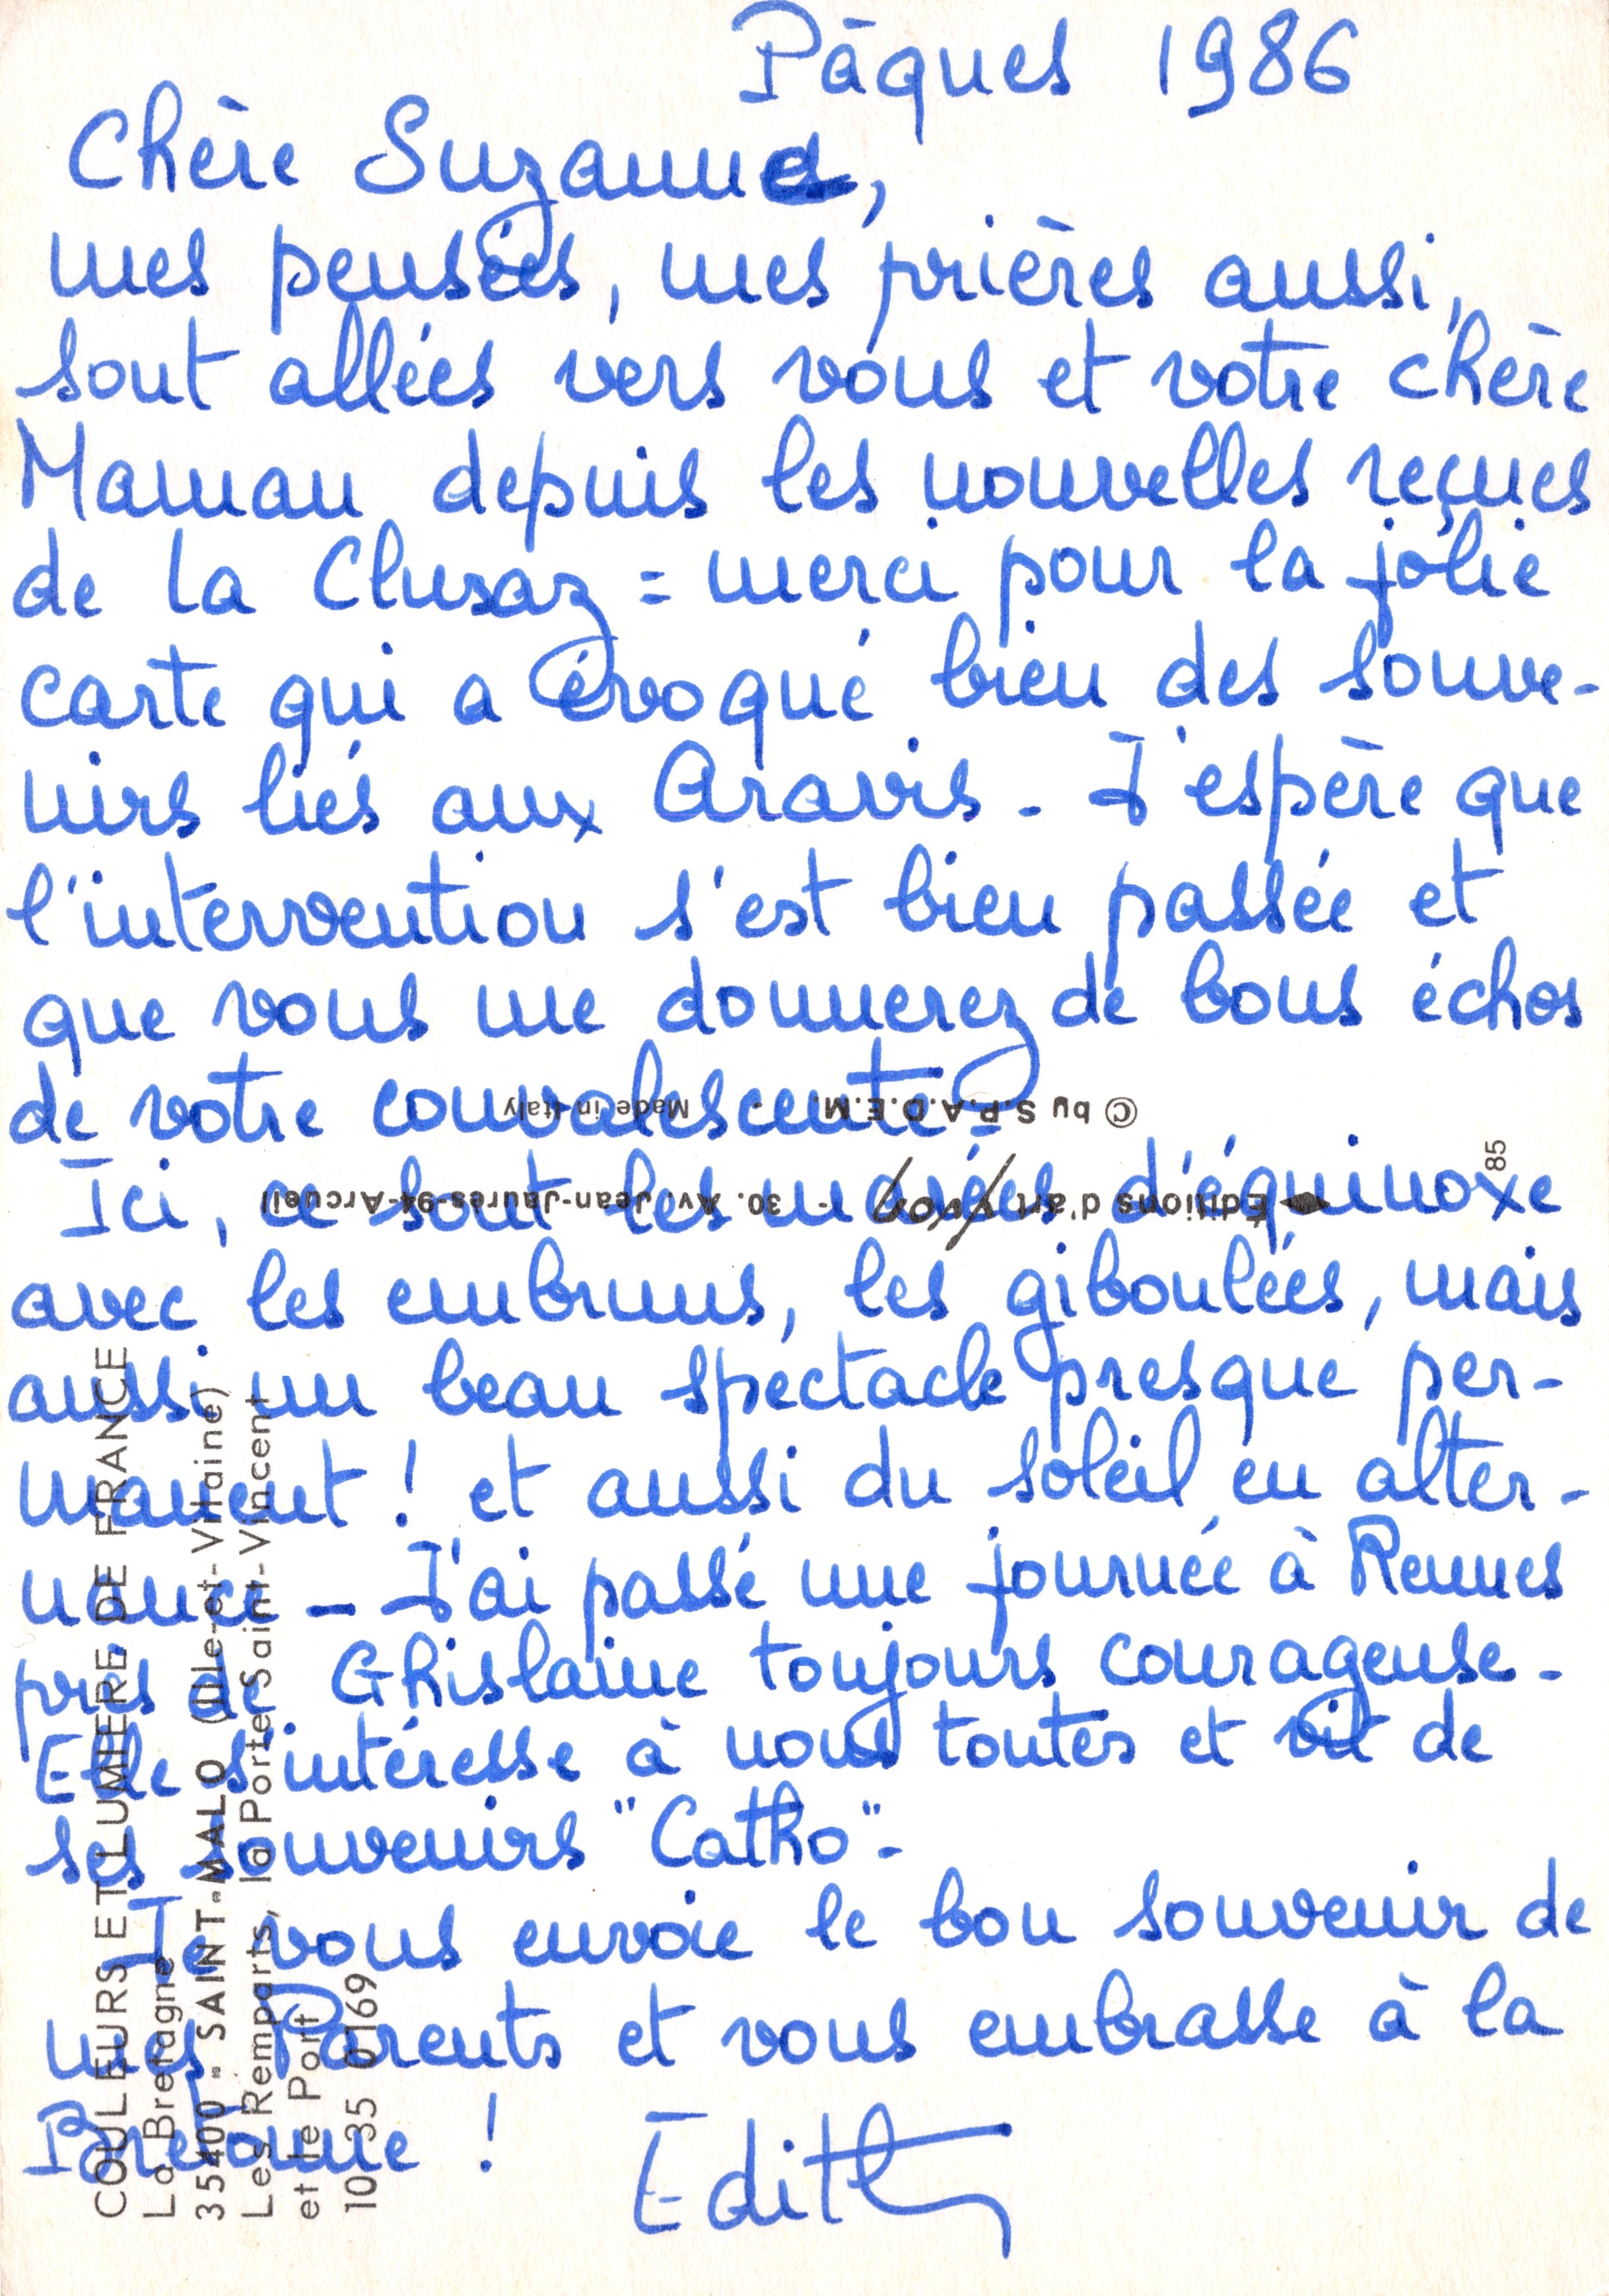 Pâques 1986
Chère Suzanne,
mes pensées, mes prières aussi,
sont allées vers vous et votre chère
Maman depuis les nouvelles reçues
de la Clusaz = merci pour la jolie
carte qui a évoqué bien des souve-
nirs liés aux Aravis - J'espère que
l'intervention s'est bien passée et
que vous me donnerez de bons échos
de votre convalescente -
Ici, ce sont les marées d'équinoxe
avec les embruns, les giboulées, mais
aussi un beau spectacle presque per-
manent ! et aussi du soleil en alter-
nance - J'ai passé une journée à Rennes
près de Ghislaine toujours courageuse -
Elle s'intéresse à nous toutes et vit de
ses souvenirs "Catho" -
Je vous envoie le bon souvenir de
mes Parents et vous embrasse à la
Bretonne !
Edith
© by S.P.A.D.E.M. - Made in Italy
Editions d'art Yvon - 30. Av. Jean-Jaurès-94-Arcueil
85
COULEURS ET LUMIERE DE FRANCE
La Bretagne
35400 - SAINT-MALO (Ille-et-Vilaine)
Les Remparts, la Porte Saint-Vincent
et le Port
10 35 0169